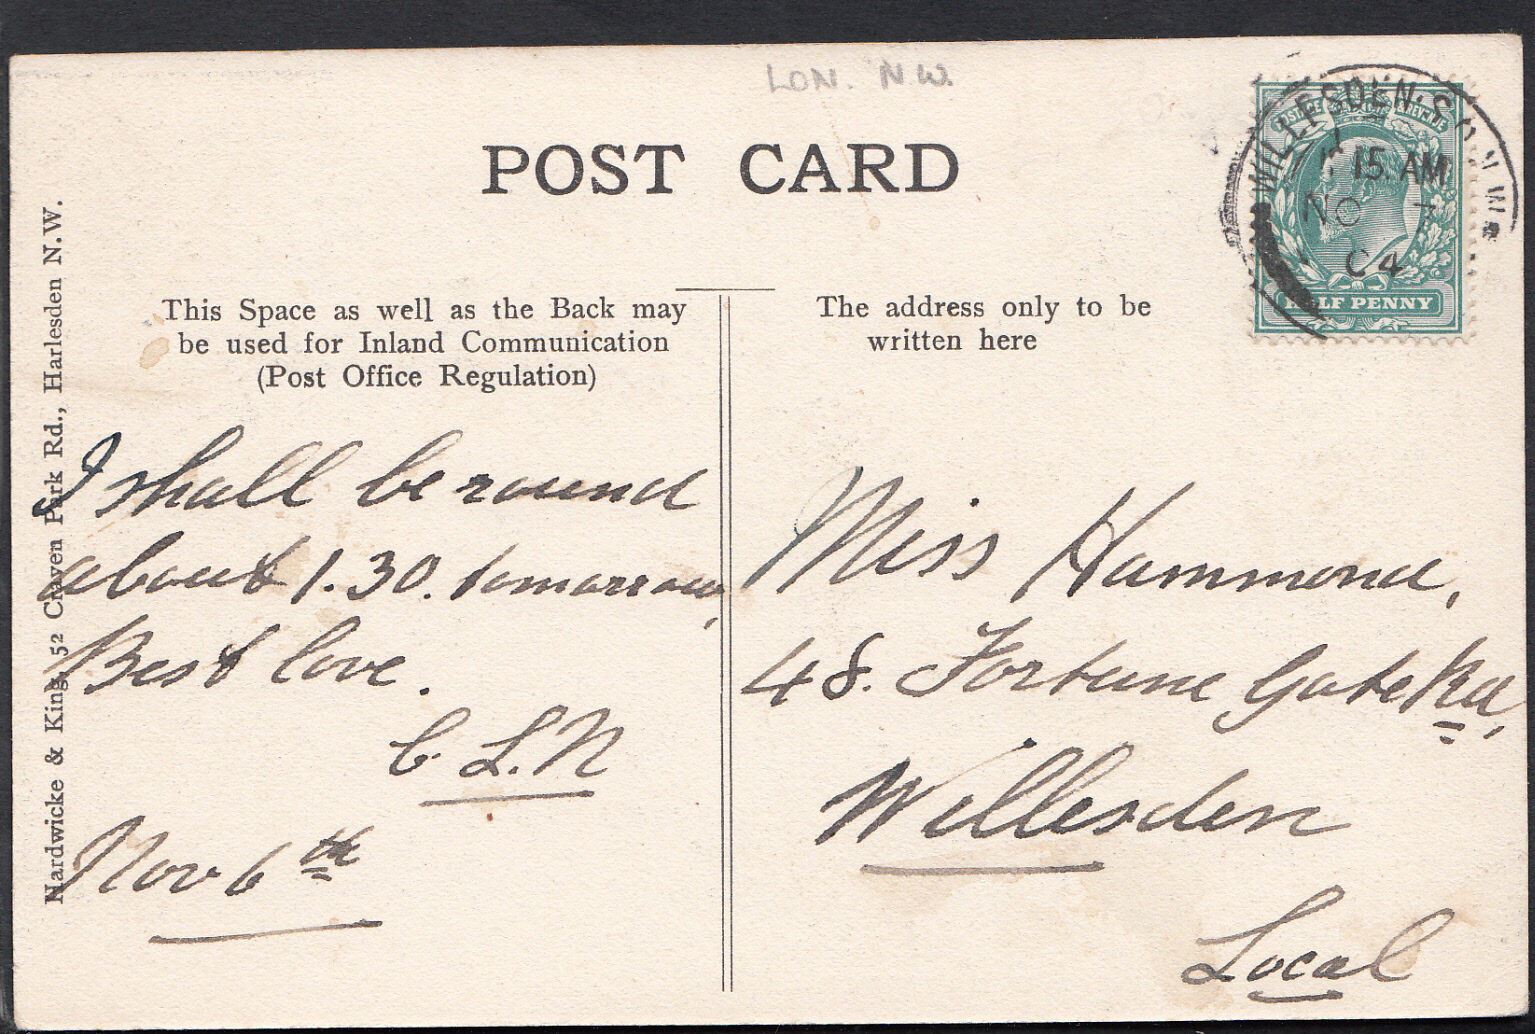 LON. N.W.
POST CARD
This Space as well as the Back may
be used for Inland Communication
(Post Office Regulation)
The address only to be
written here
WILLESDEN S.O. N.W.
15. AM
NO 7
04
HALF PENNY
I shall be round
about 1.30. tomorrow,
Best love.
C. L. N
Nov 6th
Miss Hammond,
48. Fortune Gate Rd,
Willesden
Local
Hardwicke & King, 52 Craven Park Rd., Harlesden N.W.